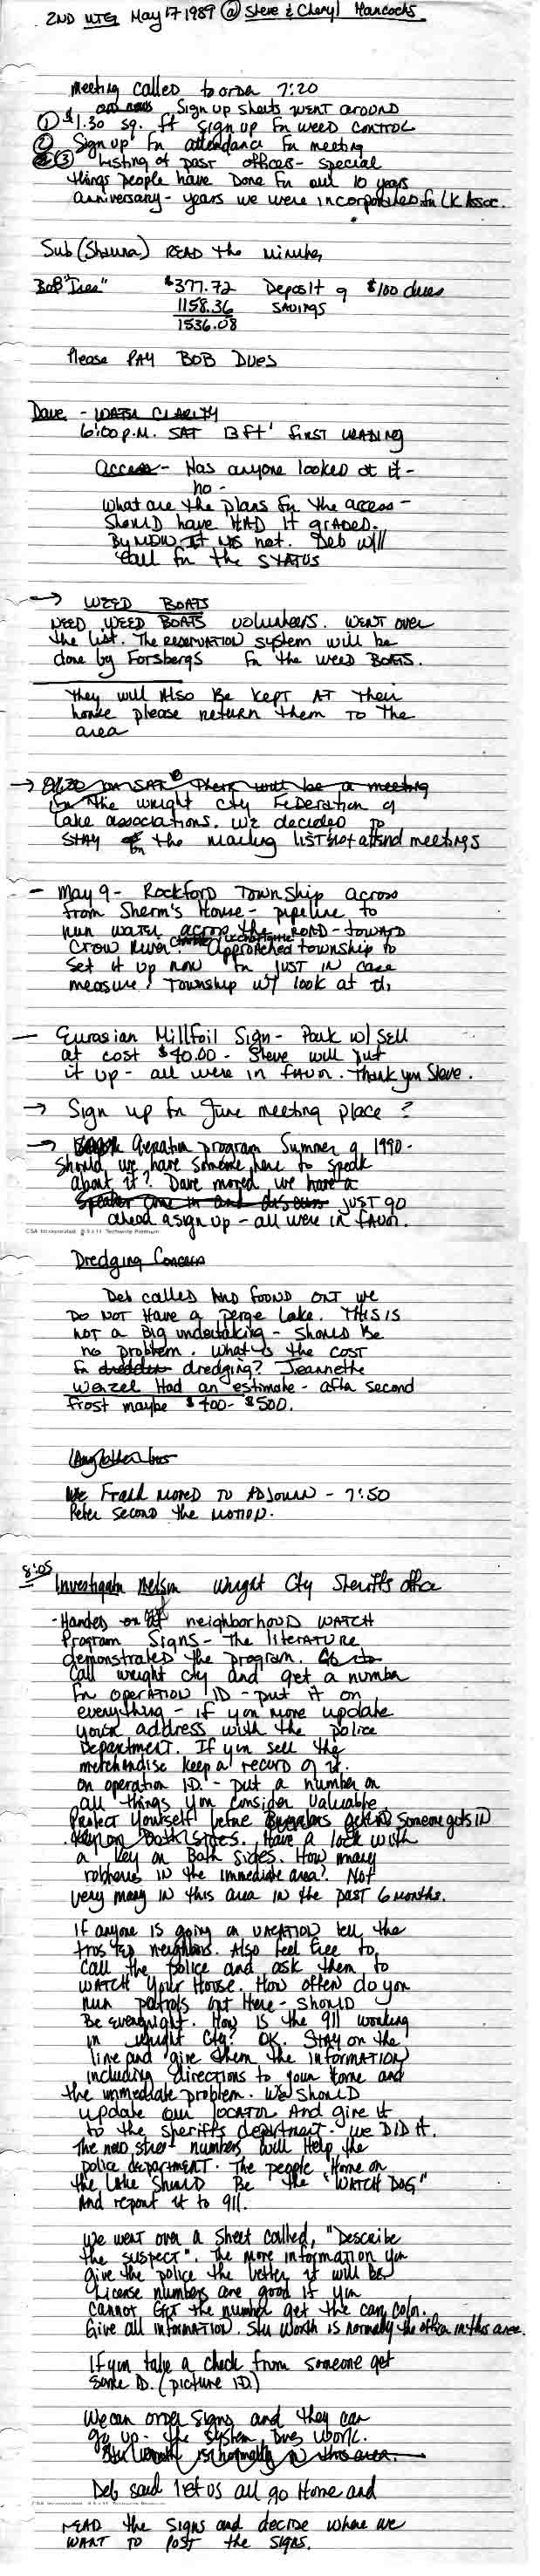 2ND MTG May 17 1989 @ Steve & Cheryl Hancocks
meeting called to order 7:20
Sign up sheets went around
① $1.30 sq. ft sign up for weed control
② Sign up for attendance for meeting
③ Listing of past offices - special
things people have Done for our 10 years
anniversary - years we were incorporated for LK Assoc.
Sub (Shauna) READ the minutes
Bob "Tres" $377.72 Deposit of $100 dues
1158.36 SAVINGS
1536.08
Please PAY BOB DUES
Dave - WATER CLARITY
6:00 p.m. SAT 13 ft' first reading
Access - Has anyone looked at it -
no -
what are the plans for the access -
Should have HAD it graded.
By now it is not. Deb will
call for the STATUS
→ WEED BOATS
NEED WEED BOATS volunteers. WENT over
the list. The RESERVATION system will be
done by Forsbergs for the weed BOATS.
They will Also Be kept AT their
house please return them TO The
area
→ 8:30 on SAT There will be a meeting
for the wright cty FEDERATION of
Lake associations. We decided to
STAY on the mailing list not attend meetings
- May 9 - Rockford Township across
from Sherm's House - pipeline to
run water across the ROAD - TOWARD
Crow River. Approached township to
Set it up now for JUST IN case
measure! Township w/ look at it
- Eurasian Millfoil Sign - Park w/ sell
at cost $40.00 - Steve will put
it up - all were in favor. Thank you Steve.
→ Sign up for June meeting place?
→ Aeration program Summer of 1990 -
Should we have someone here to speak
about it? Dave moved we have a
Speaker come in and discuss JUST go
ahead & sign up - all were in favor.
CSA Incorporated 8.5 x 11 Techwrite Premium
Dredging Concern
Deb called AND FOUND OUT we
DO NOT Have a Lake. THIS IS
not a Big undertaking - SHOULD Be
no problem. What is the cost
for dredging? Jeannette
Wenzel Had an estimate - after second
frost maybe $400 - $500.
We Frank MOVED TO ADJOURN - 7:50
Peter Second the MOTION.
8:05 Investigator Nelson Wright Cty Sheriff's office
- Handed out neighborhood WATCH
Program Signs - The LITERATURE
demonstrated the program. Go to
Call wright cty and get a number
for OPERATION ID - put it on
everything - if you move update
your address with the police
DEPARTMENT. If you sell the
merchandise keep a record of it.
on operation I.D. - put a number on
all things you consider valuable
Protect Yourself before Burglars someone gets IN
Key on Both sides. Have a lock with
a Key on Both sides. How many
robberies IN the immediate area? Not
very many IN this area IN the past 6 months.
If anyone is going on VACATION tell the
trusted neighbors. Also feel free to
call the police and ask them to
WATCH your House. How often do you
run patrols out Here - SHOULD
Be everynight. How is the 911 working
in wright cty? OK. Stay on the
line and give them the INFORMATION
including directions to your home and
the immediate problem. We SHOULD
update our LOCATOR And give it
to the sheriffs department. We DID it.
The new street numbers will Help the
police department. The people Home on
the Lake SHOULD Be the "WATCH DOG"
And report it to 911.
We went over a sheet called, "Describe
the suspect". The more information you
give the police the better it will Be
License numbers are good if you
cannot get the number get the car, color.
Give all information. Stu Worth is normally the officer in this area.
If you take a check from someone get
some ID. (picture ID.)
We can order signs and they can
go up - the System Does WORK.
Stu Worth is normally in this area.
Deb said let us all go Home and
READ the signs and decide where we
WANT TO POST the SIGNS.